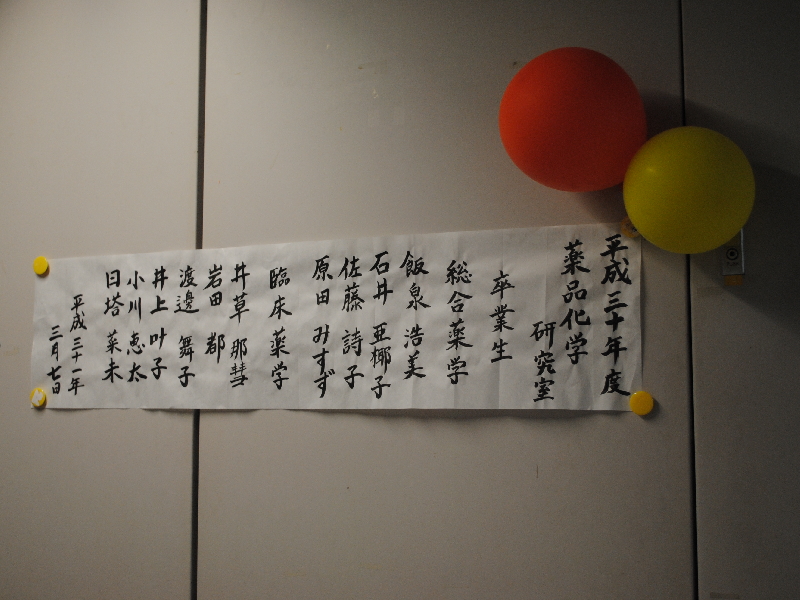 平成三十年度
薬品化学
研究室
卒業生
総合薬学
飯泉 浩美
石井 亜椰子
佐藤 詩子
原田 みすず
臨床薬学
井草 那彗
岩田 都
渡邊 舞子
井上 叶子
小川 恵太
日塔 菜未
平成三十一年
三月七日